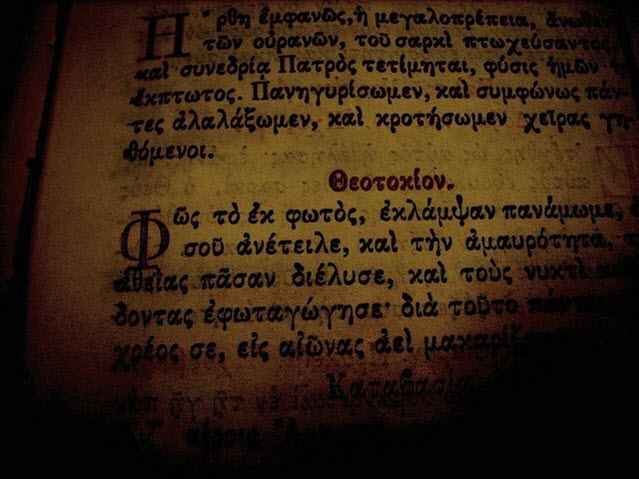 Ἤρθη ἐμφανῶς, ἡ μεγαλοπρέπεια, ἄνωθεν
τῶν οὐρανῶν, τοῦ σαρκὶ πτωχεύσαντος,
καὶ συνεδρίᾳ Πατρὸς τετίμηται, φύσις ἡμῶν ἡ
ἔκπτωτος. Πανηγυρίσωμεν, καὶ συμφώνως πάν-
τες ἀλαλάξωμεν, καὶ κροτήσωμεν χεῖρας γη-
θόμενοι.
Θεοτοκίον.
Φῶς τὸ ἐκ φωτὸς, ἐκλάμψαν πανάμωμε,
σοῦ ἀνέτειλε, καὶ τὴν ἀμαυρότητα,
ἀθεΐας πᾶσαν διέλυσε, καὶ τοὺς νυκτὶ
δοντας ἐφωταγώγησε· διὰ τοῦτο
χρέος σε, εἰς αἰῶνας ἀεὶ
Καταβασία